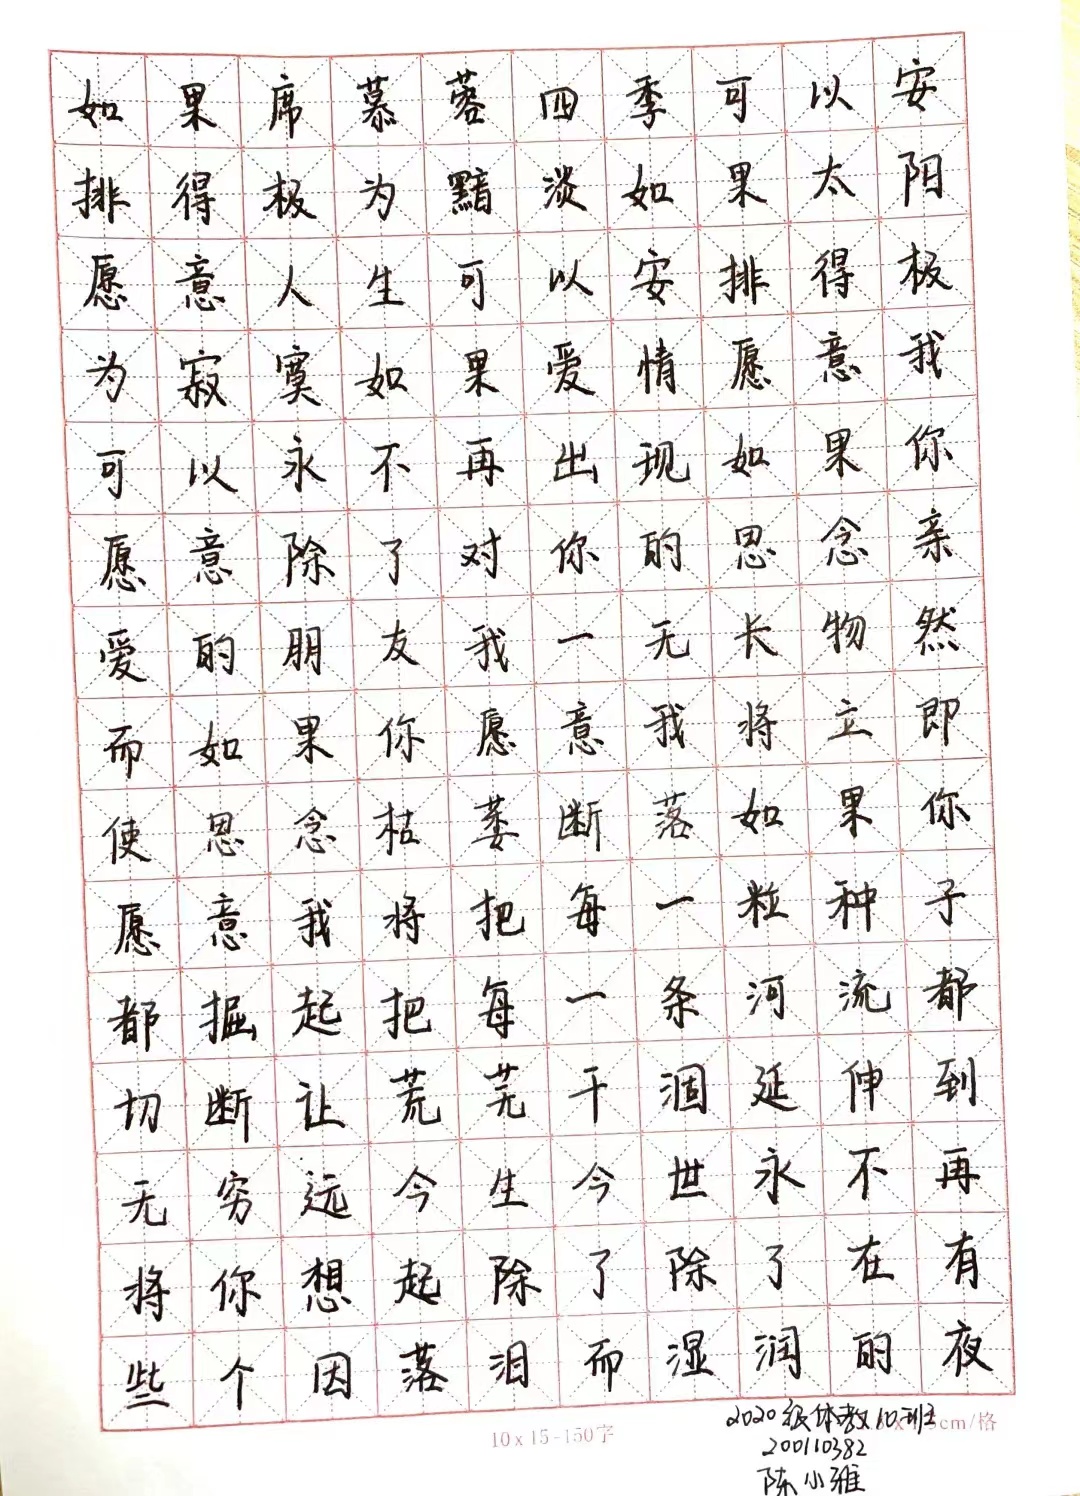 如果席慕蓉四季可以安
排得极为黯淡如果太阳
愿意人生可以安排得极
为寂寞如果爱情愿意我
可以永不再出现如果你
愿意除了对你的思念亲
爱的朋友我一无长物然
而如果你愿意我将立即
使思念枯萎断落如果你
愿意我将把每一粒种子
都掘起把每一条河流都
切断让荒芜干涸延伸到
无穷远今生今世永不再
将你想起除了除了在有
些个因落泪而湿润的夜
10x15-150字
2020级体教10班
cm/格
200110382
陈小雅